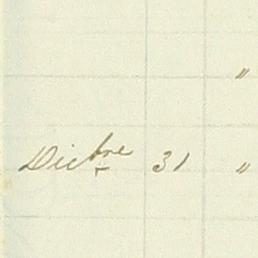 "
Dicbre 31 "